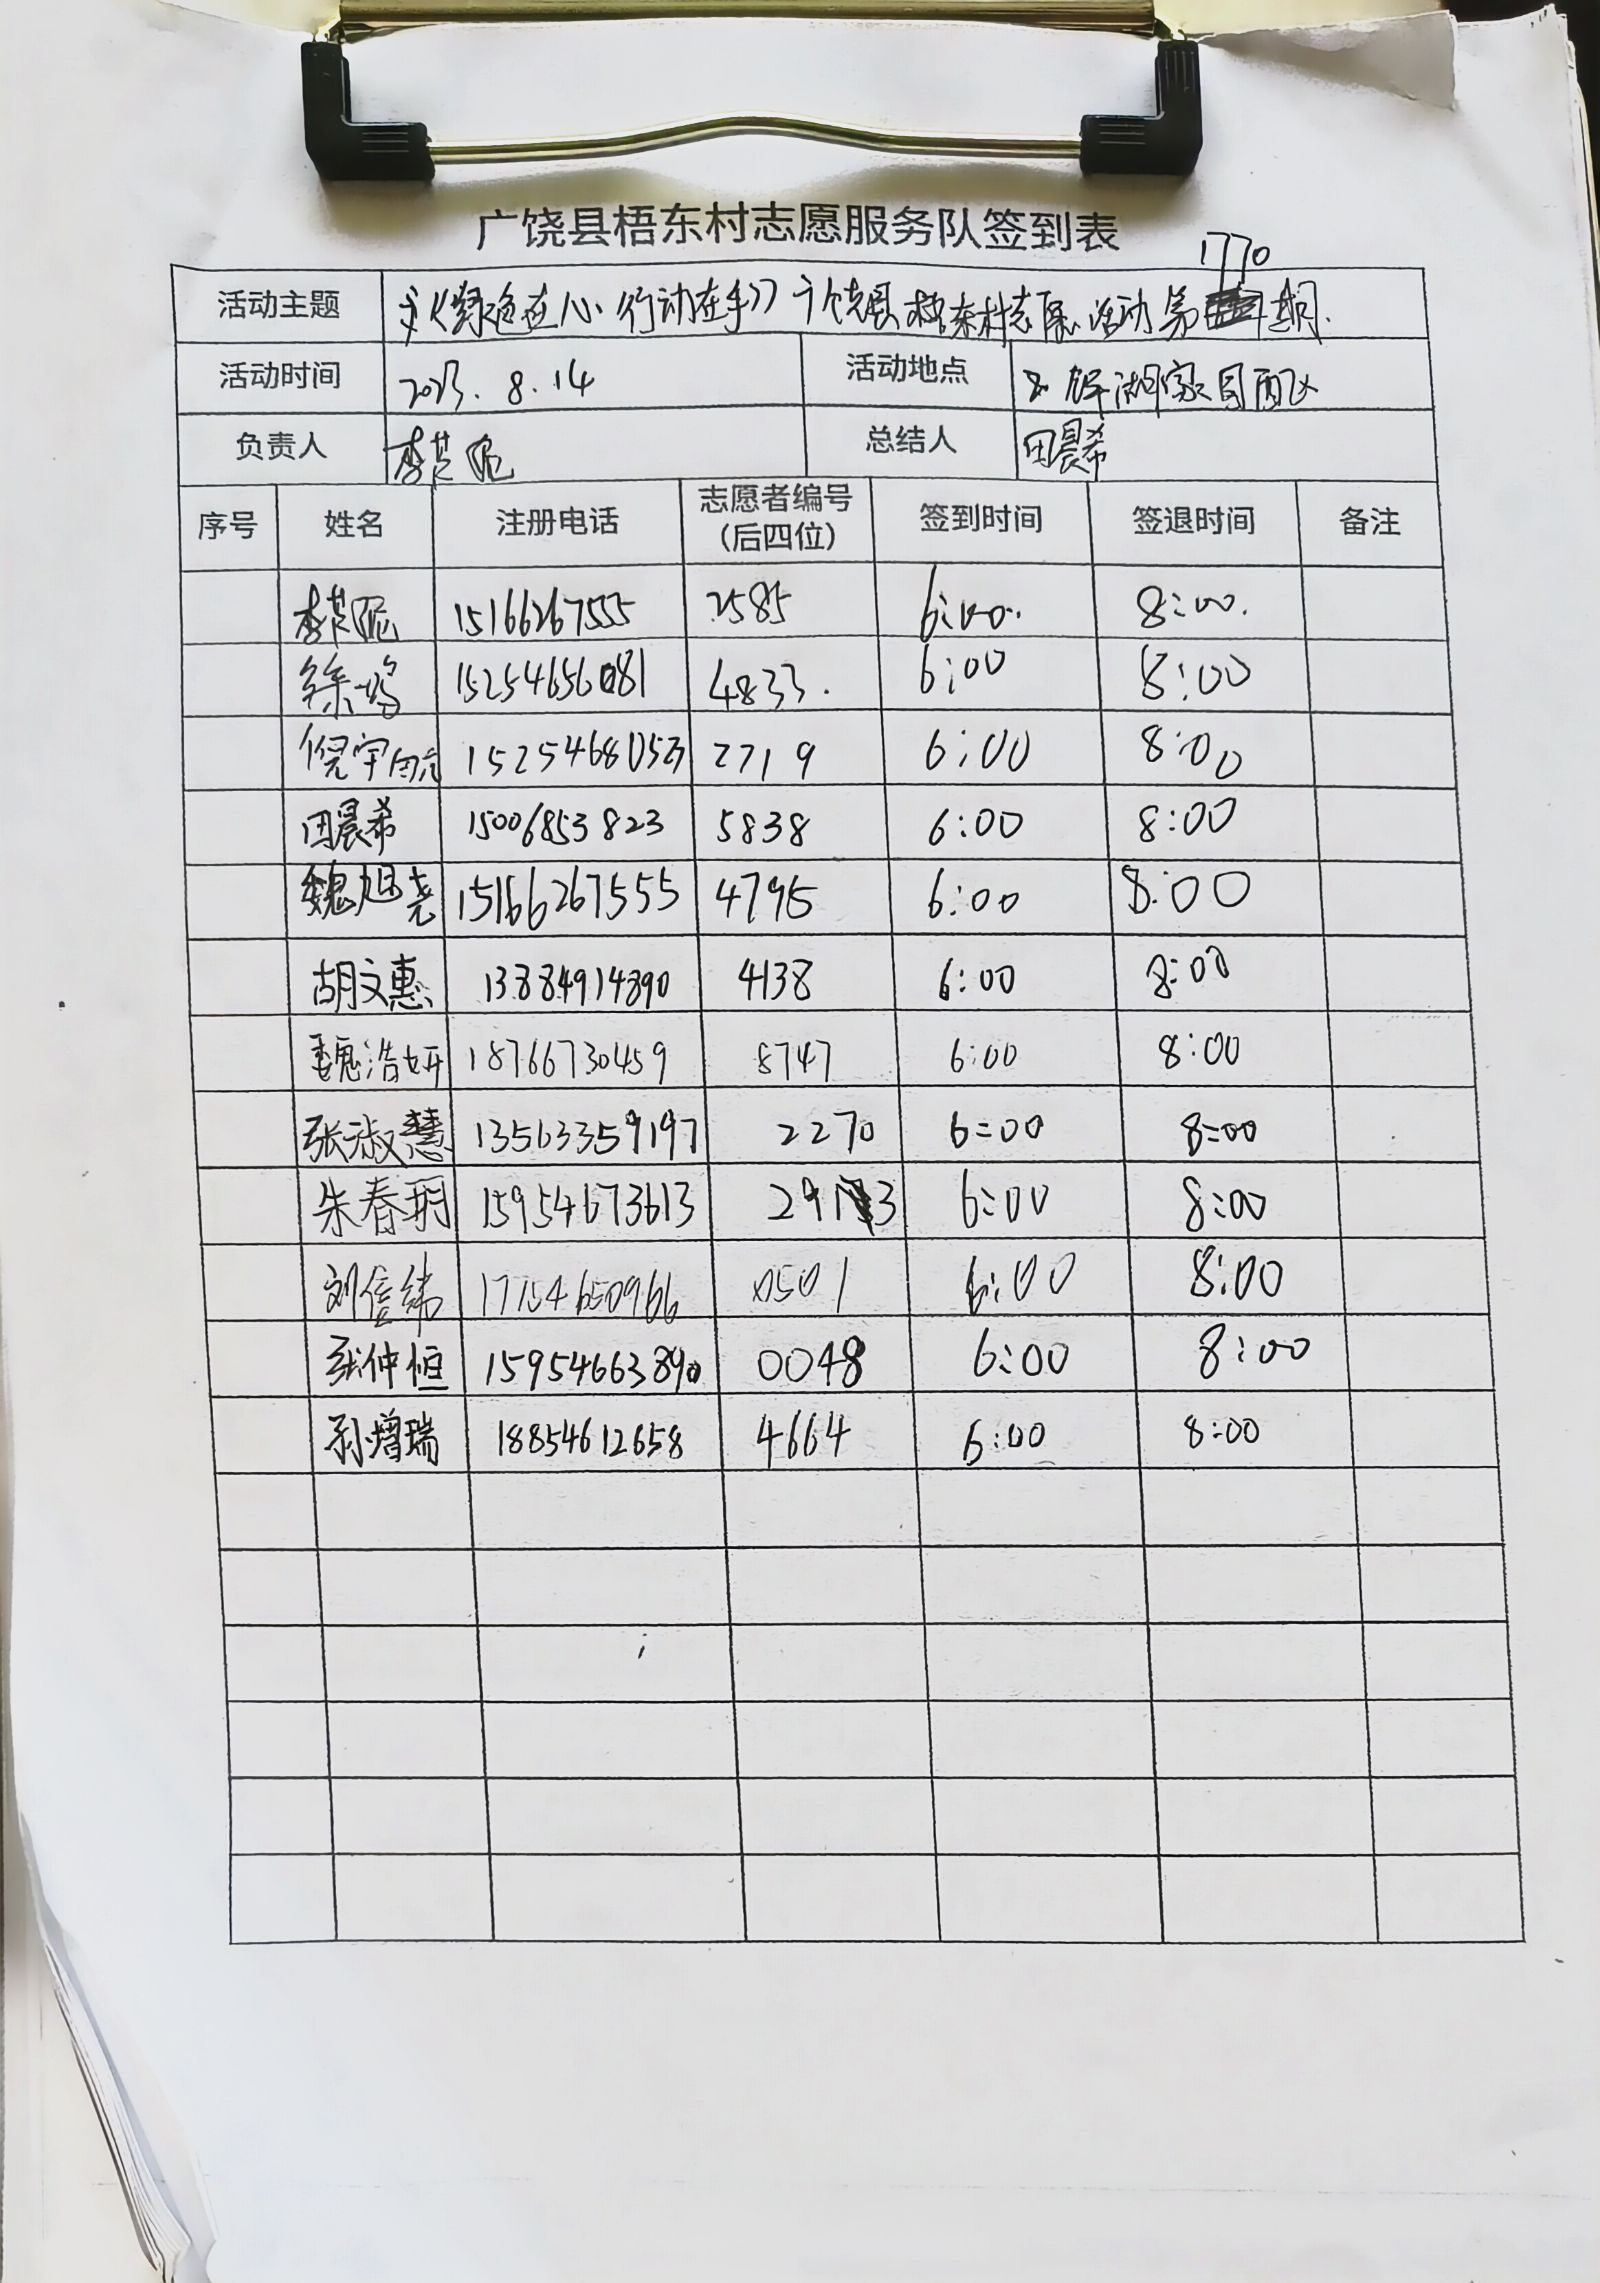 广饶县梧东村志愿服务队签到表
1770
活动主题 《绿色在心 行动在手》广饶县梧东村志愿活动第 期.
活动时间 2023.8.14 活动地点 湖家园西区
负责人 李 总结人 田晨希
序号 姓名 注册电话 志愿者编号 签到时间 签退时间 备注
(后四位)
李 15166267555 2585 6:00. 8:00.
徐 15254656081 4833. 6:00 8:00
倪宇航 152546805 2719 6:00 8:00
田晨希 15006853823 5838 6:00 8:00
魏旭尧 15166267555 4795 6:00 8:00
胡文惠 13884914890 4138 6:00 8:00
魏浩妍 18766730459 8747 6:00 8:00
张淑慧 13563359197 2270 6:00 8:00
朱春玥 15954673613 2913 6:00 8:00
刘信纬 17154650966 0501 6:00 8:00
张仲恒 15954663890 0048 6:00 8:00
孙增瑞 18854612658 4664 6:00 8:00